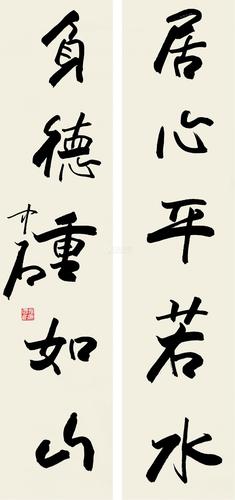 居心平若水
负德重如山
中石